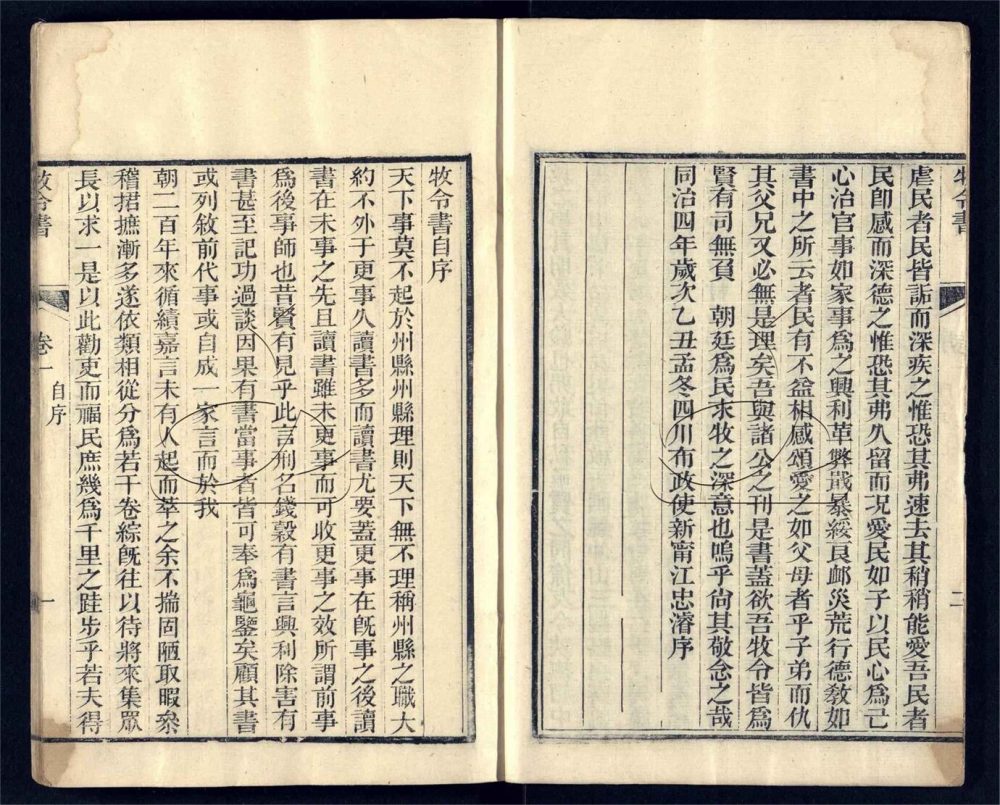 牧令書
二
虐民者民皆詬而深疾之惟恐其弗速去其稍稍能愛吾民者
民卽感而深德之惟恐其弗久留而况愛民如子以民心爲己
心治官事如家事爲之興利革弊戢暴綏良卹災荒行德敎如
書中之所云者民有不益相感頌愛之如父母者乎子弟而仇
其父兄又必無是理矣吾與諸公之刊是書蓋欲吾牧令皆爲
賢有司無負 朝廷爲民求牧之深意也嗚乎尙其敬念之哉
同治四年歲次乙丑孟冬四川布政使新甯江忠濬序
牧令書自序
天下事莫不起於州縣州縣理則天下無不理稱州縣之職大
約不外于更事久讀書多而讀書尤要蓋更事在旣事之後讀
書在未事之先且讀書雖未更事而可收更事之效所謂前事
爲後事師也昔賢有見乎此言刑名錢穀有書言興利除害有
書甚至記功過談因果有書當事者皆可奉爲龜鑒矣顧其書
或列敘前代事或自成一家言而於我
朝二百年來循績嘉言未有人起而萃之余不揣固陋取暇參
稽捃摭漸多遂依類相從分爲若干卷綜旣往以待將來集眾
長以求一是以此勸吏而福民庶幾爲千里之跬步乎若夫得
牧令書
卷一
自序
一